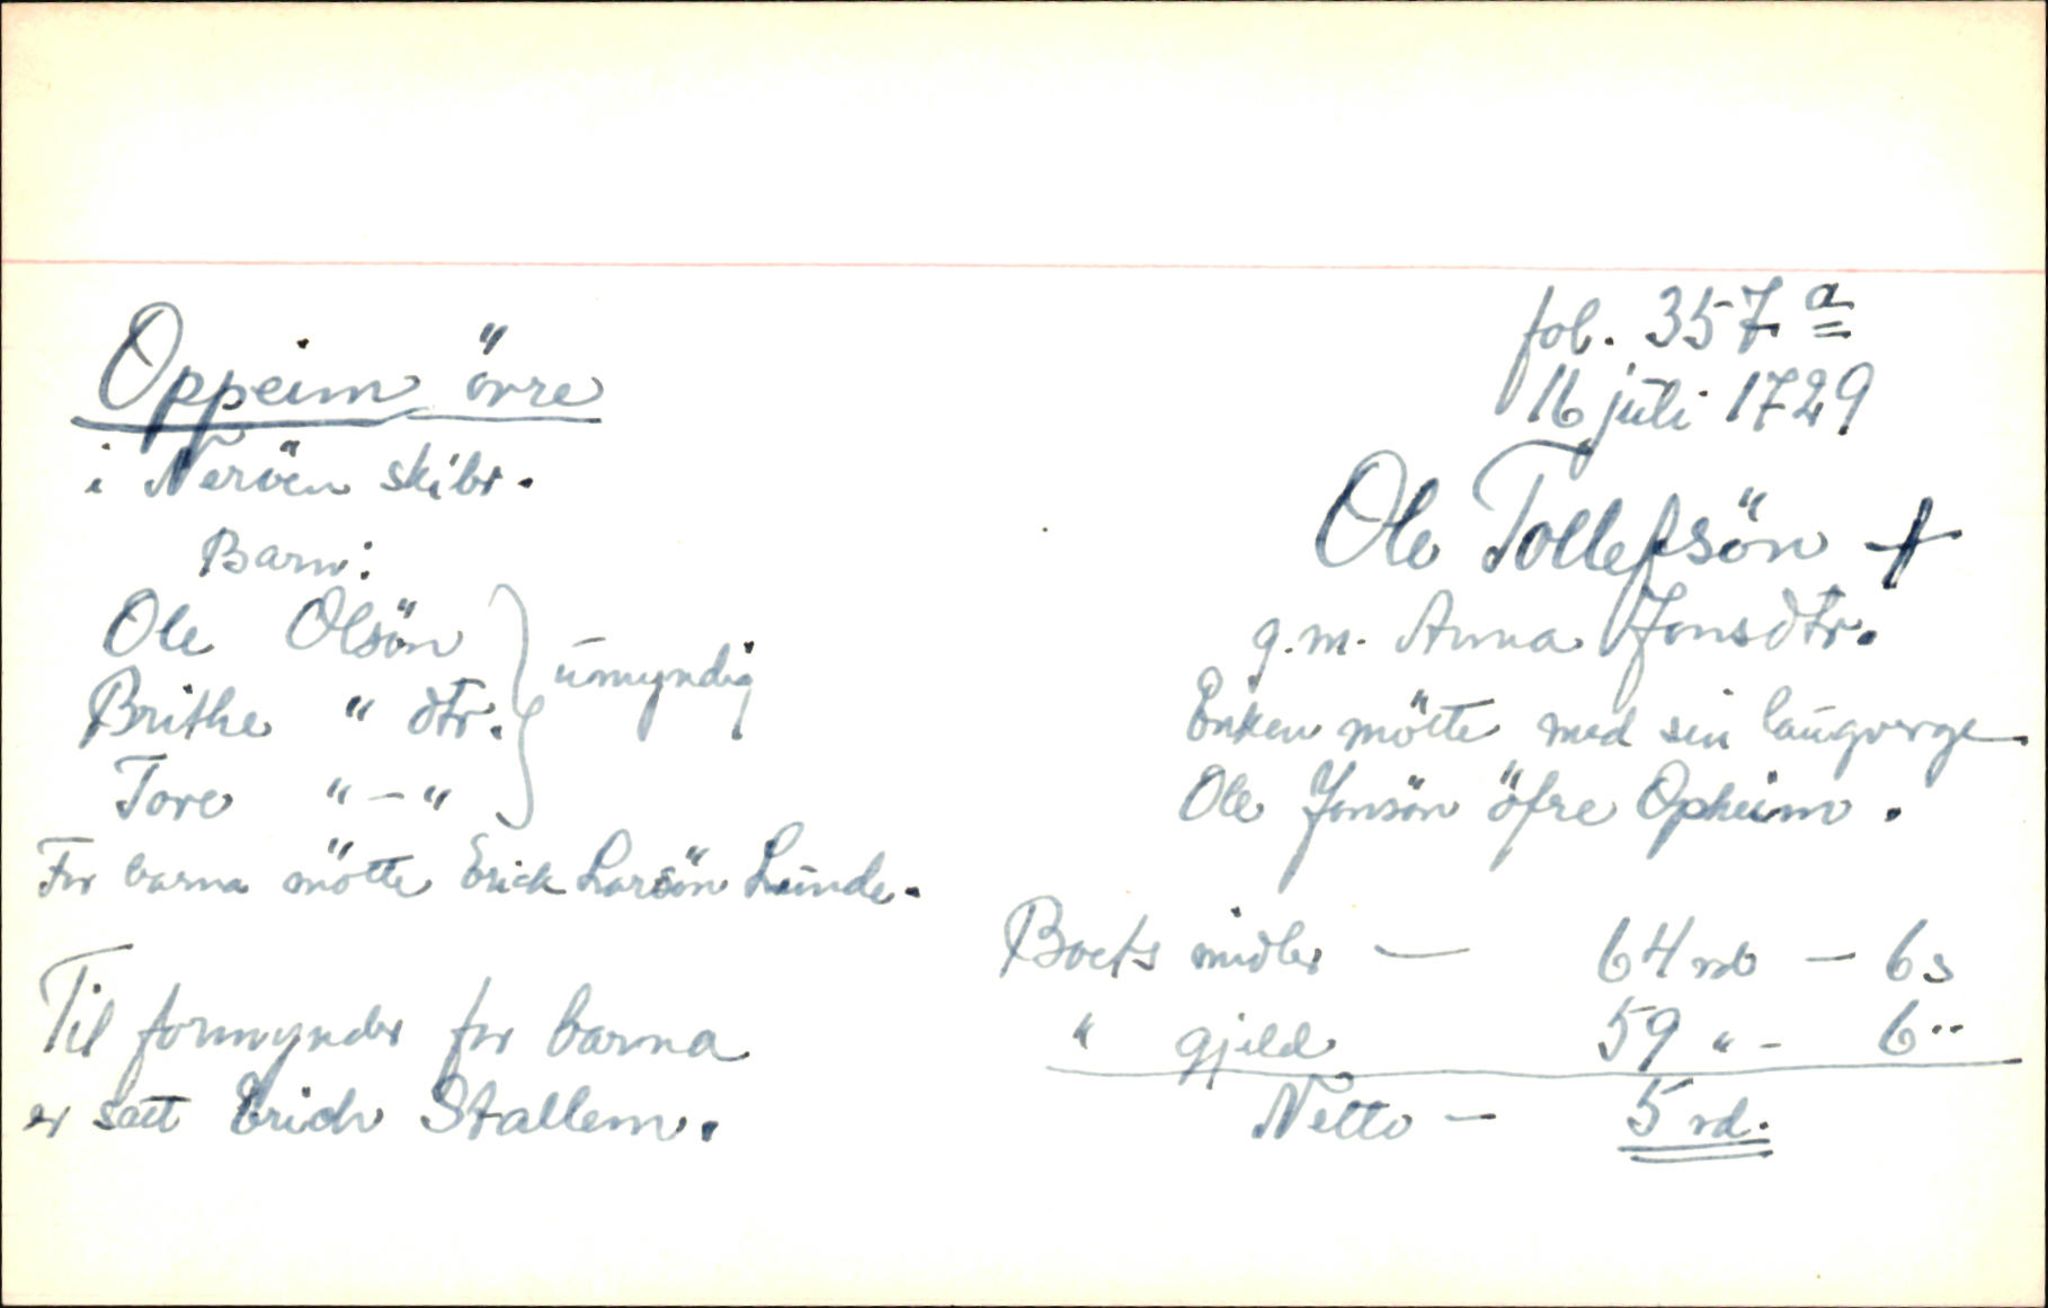 fol. 357 a
16 juli 1729
Oppeim övre
i Neröen skibr.
Ole Tollefsön +
g.m. Anna Jonsdtr.
Enken mötte med sin laugverge
Ole Jonsön öfre Opheim.
Barn:
Ole Olsön } umyndig
Brithe " dtr.
Tore " - "
For barna mötte Erick Larsön Lunde.
Til formynder for barna
er satt Erich Stallem.
Boets midler — 64 rd - 6 s
" gjeld 59 " - 6 "
Netto — 5 rd.